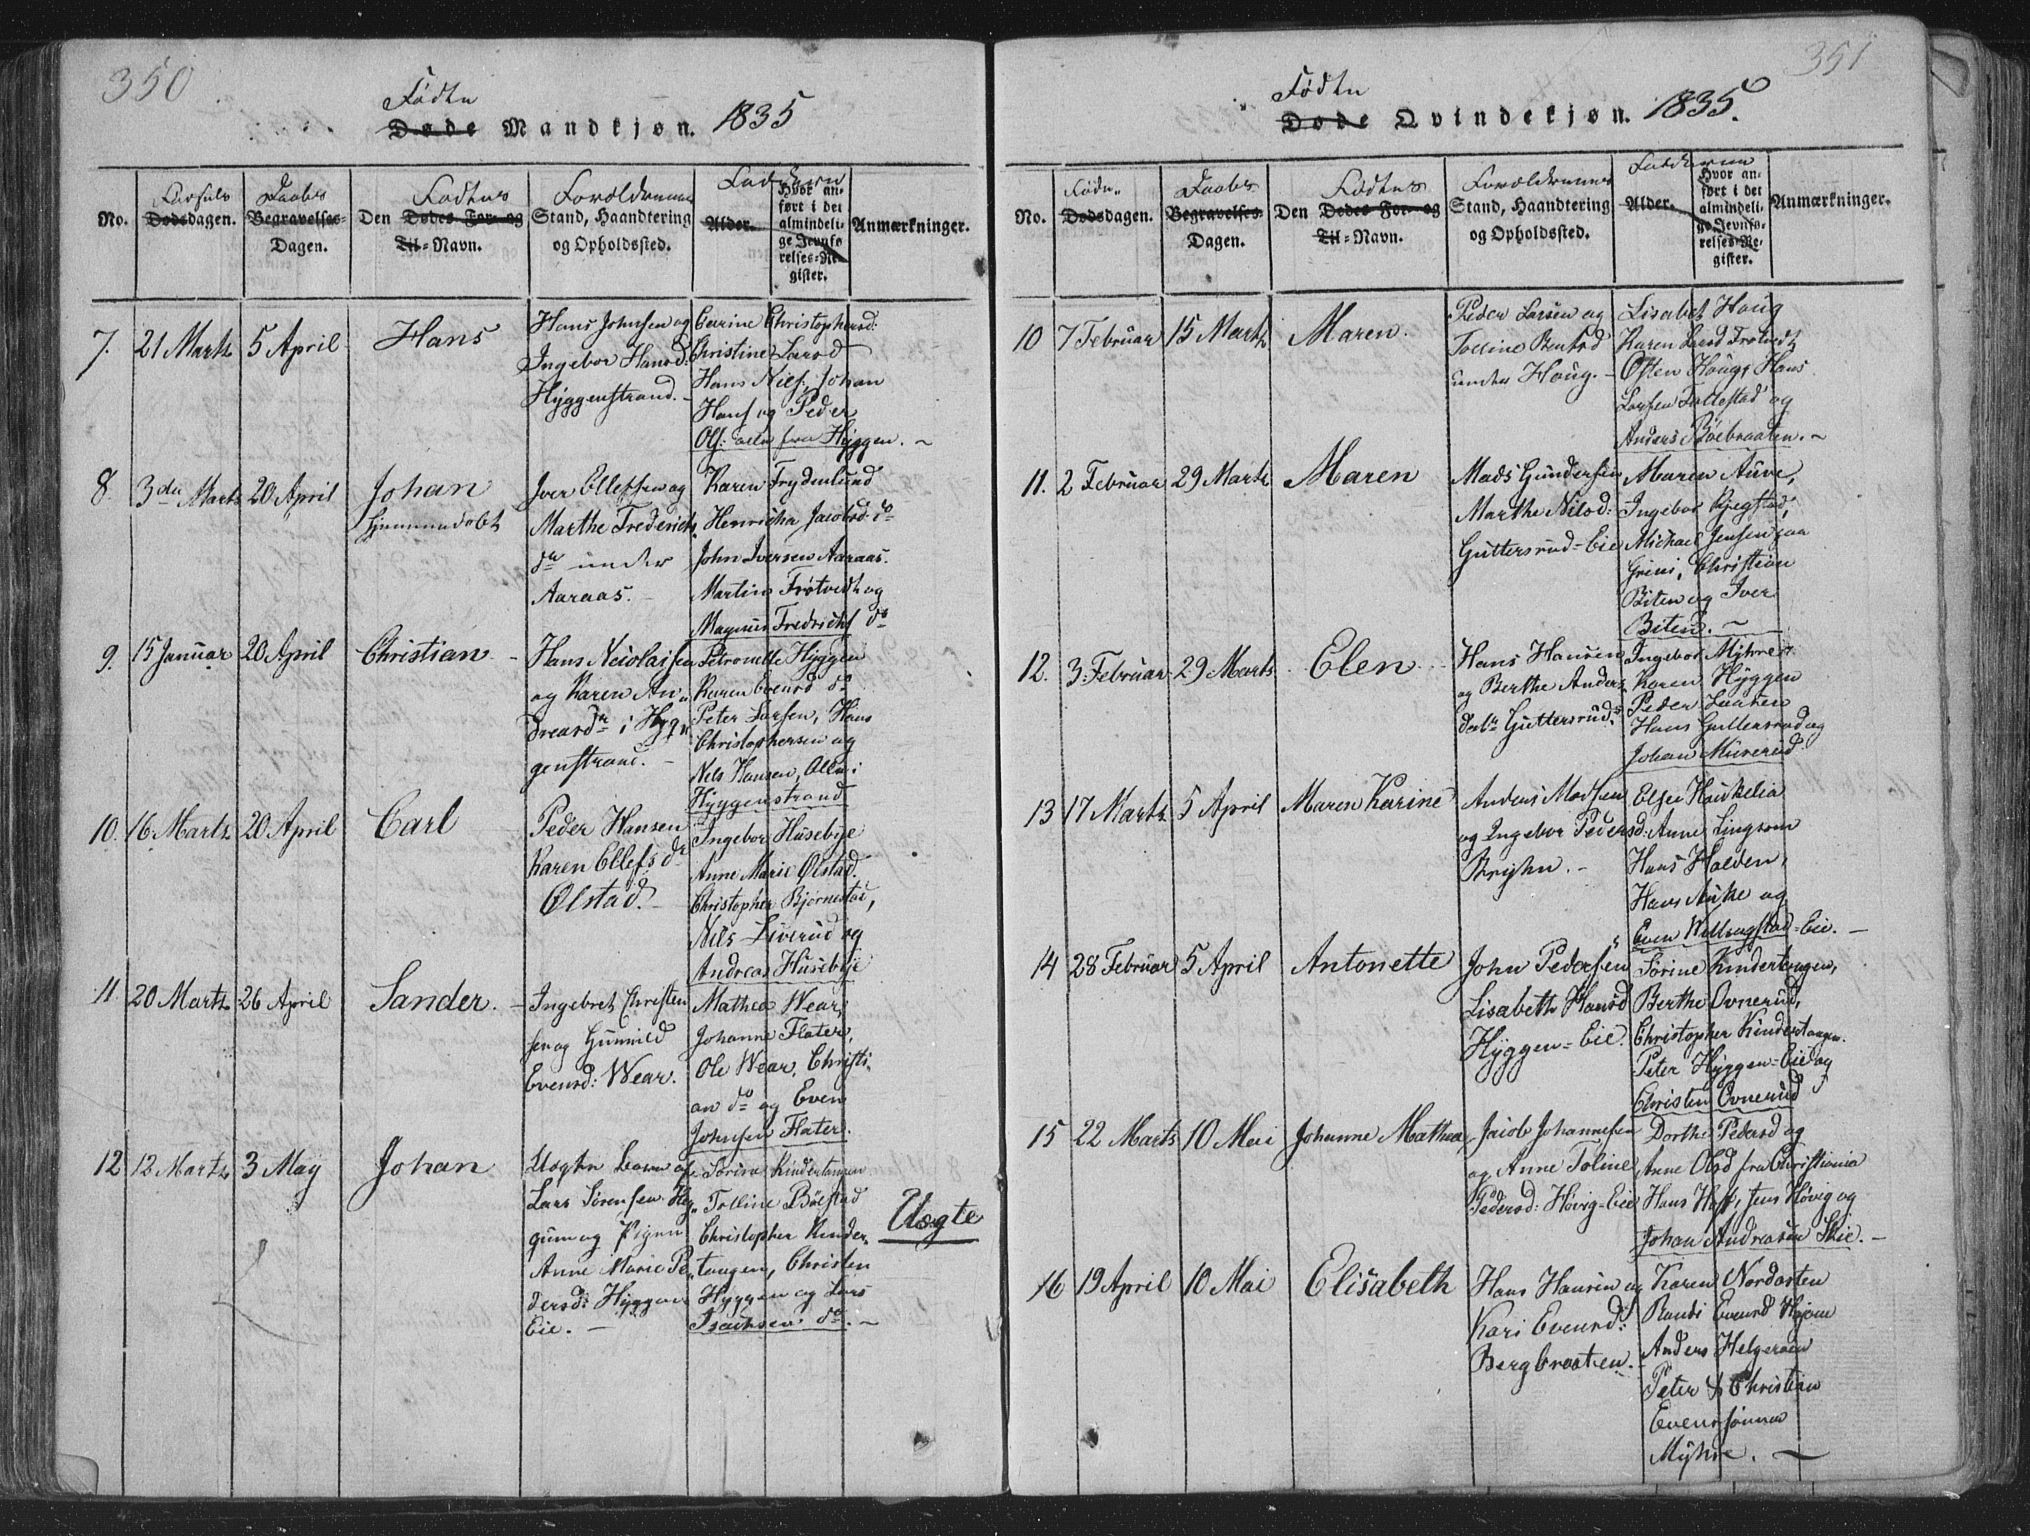 350
Fødte
Døde Mandkjøn. 1835
No.
Dødsdagen.
Daabs
Begravelses-
Dagen.
Fødtes
Den Dødes For- og
Til-Navn.
Forældrenes
Stand, Haandtering
og Opholdssted.
Alder.
Hvor an-
ført i det
almindeli-
ge Jevnfø-
relses-Re-
gister.
Anmærkninger.
7. 21 Marts 5 April Hans
Hans Johnsen og
Ingebor Hansd:
Hyggenstrand.
Christophersd:
Christine Larsd
Hans Nils, Johan
Hans og Peder
Ols: alle fra Hyggen.
8. 3die Marts 20 April Johan
Hjemmedøbt
Iver Ellefsen og
Marthe Frederichs
dr under
Aaraas.
Karen Frydenlund
Henricha Jacobsd: do
John Iversen Aaraas.
Martin Frøtvedt og
Magnus Fredrichs do
9. 15 Januar 20 April Christian
Hans Nicolaisen
og Karen An-
dreasdr i Hyg-
genstrand.
Petronelle Hyggen
Karen Evensd do
Peter Larsen, Hans
Christophersen og
Nils Hansen, Alle i
Hyggenstrand
10. 16 Marts 20 April Carl
Peder Hansen
Karen Ellefsdr
Ølstad.
Ingebor Husebye
Anne Marie Ølstad.
Christopher Bjørnestad,
Nils Liverud og
Andreas Husebye
11 20 Marts 26 April Sander.
Ingebret Christen
sen og Gunnild
Evensd: Wear.
Mathea Wear,
Johanne Flater,
Ole Wear, Christi-
an do og Even
Johnsen Flater.
12 12 Marts 3 May Johan
Uægte Barn af
Lars Sørensen Hy-
gen og Pigen
Anne Marie Pe-
dersd: Hyggen
Eie.
Sørine Kindertangen
Tolline Bølstad
Christopher Kinder-
tangen, Christen
Hyggen og Lars
Isachsen do.
Uægte
351
Fødte
Døde Qvindekjøn. 1835.
No.
Føds-
Dødsdagen.
Daabs
Begravelses-
Dagen.
Fødtes
Den Dødes For- og
Til-Navn.
Forældrenes
Stand, Haandtering
og Opholdssted.
Fadderne
Alder.
Hvor an-
ført i det
almindeli-
ge Jevnfø-
relses-Re-
gister.
Anmærkninger.
10 7 Februar 15 Marts Maren.
Peder Larsen og
Tolline Bentsd
under Houg.
Lisabet Houg
Karen Larsd Frøtvedt
Østen Houg, Hans
Larsen Tollestad og
Anders Bøebraaten.
11. 2 Februar 29 Marts Maren
Mads Gundersen
Marthe Nilsd:
Guttersrud-Eie
Maren Auve,
Ingebor Kjegstad,
Michael Jensen paa
Grini, Christian
Biten og Iver
Biten.
12. 3. Februar 29 Marts Elen
Hans Hansen
og Berthe Anders
datr Guttersrud.
Ingebor Myhre
Karen Hyggen
Peder
Hans Guttersrud og
Johan Murerud
13 17 Marts 5 April Maren Karine
Anders Madsen
og Ingebor Pedersd:
Elsee Haukelia
Anne Lingsom
Hans Halden,
Hans Auke og
Even Wellugstad-Eie.
14 28 Februar 5 April Antonette
John Pedersen
Lisabeth Hansd
Hyggen-Eie.
Sørine Kindertangen,
Berthe Ovnerud,
Christopher Kindertangen.
Peter Hyggen-Eie og
Christen Ovnerud
15 22 Marts 10 Mai Johanne Mathea
Jacob Johannesen
og Anne Toline
Pedersd: Høvig-Eie
Dorthe Pedersd og
Anne Olsd fra Christiania
Hans Hoff, Jens Høvig og
Johan Andreasen Skie.
16 19 April 10 Mai Elisabeth
Hans Hansen og
Kari Evensd:
Bergbraaten.
Karen Nordasten
Randi Evensd Hojem
Anders Helgersen
Peter & Christian
Evensønner
Myhre.